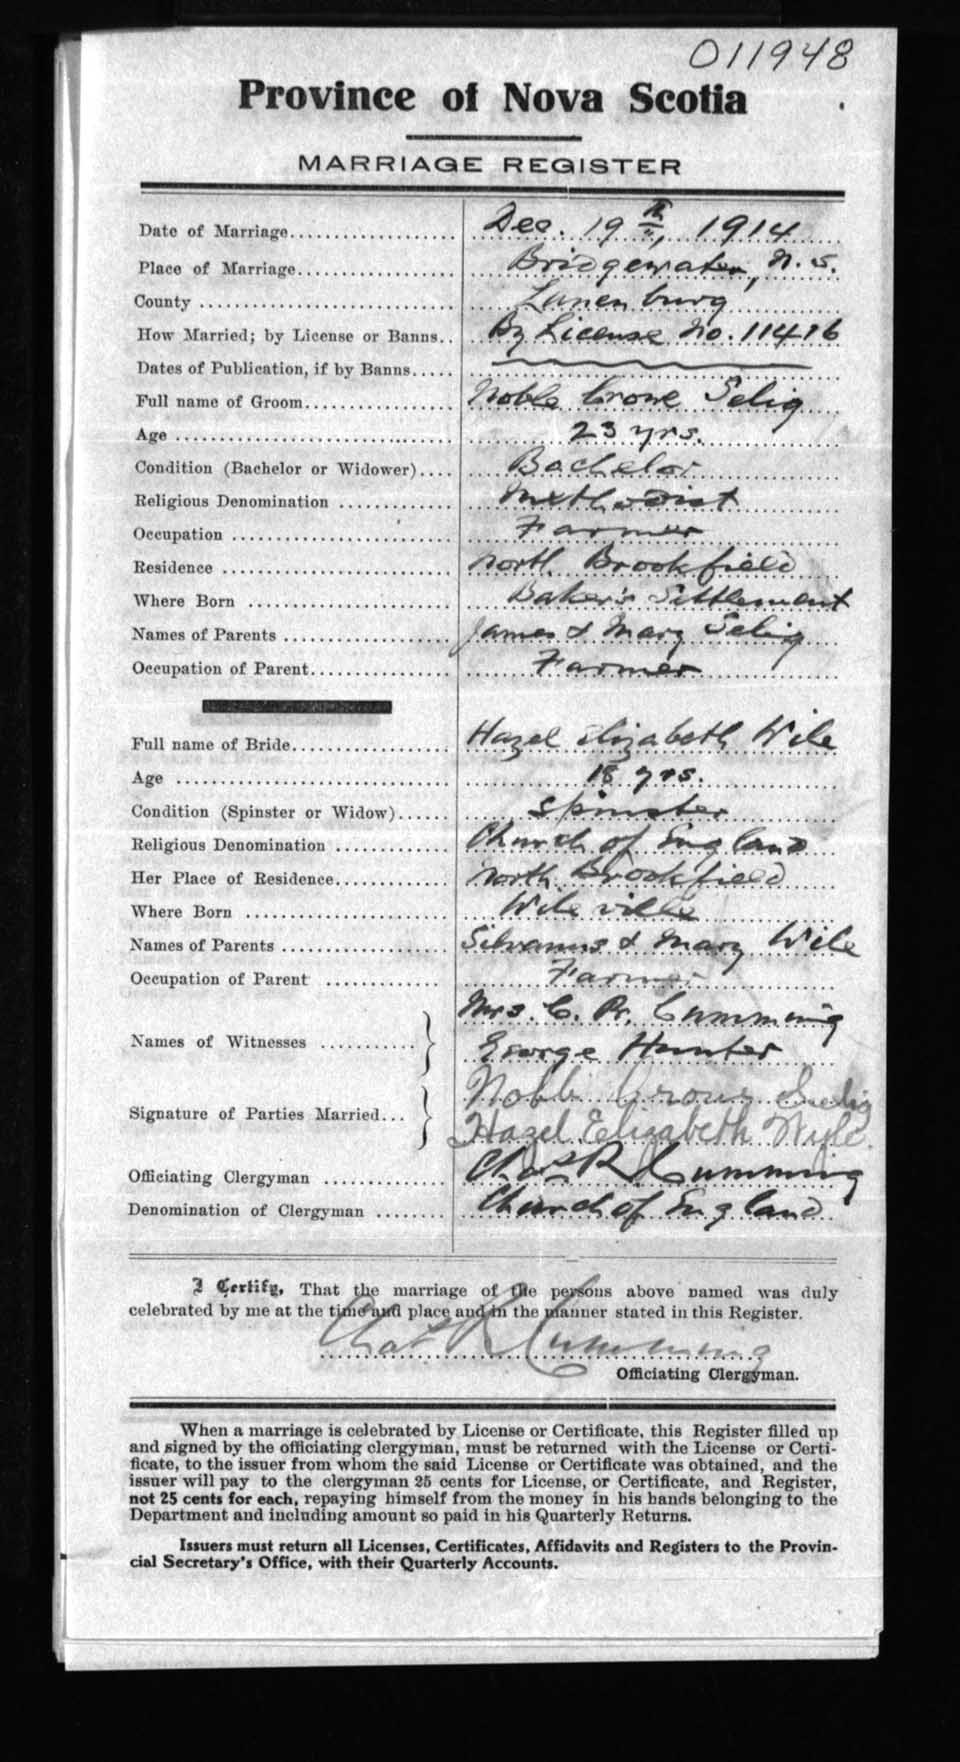 011948
Province of Nova Scotia
MARRIAGE REGISTER
Date of Marriage.................... Dec. 19th, 1914
Place of Marriage.................. Bridgewater, N.S.
County .............................. Lunenburg
How Married; by License or Banns.. By License No. 11416
Dates of Publication, if by Banns.....
Full name of Groom................. Noble Crowe Selig
Age .................................. 23 yrs.
Condition (Bachelor or Widower).... Bachelor
Religious Denomination ............ Methodist
Occupation .......................... Farmer
Residence ........................... North Brookfield
Where Born ........................ Baker's Settlement
Names of Parents ................... James & Mary Selig
Occupation of Parent................ Farmer
Full name of Bride................... Hazel Elizabeth Wile
Age .................................. 18 yrs.
Condition (Spinster or Widow)...... Spinster
Religious Denomination ............ Church of England
Her Place of Residence............. North Brookfield
Where Born ........................ Wileville
Names of Parents ................... Silvanus & Mary Wile
Occupation of Parent .............. Farmer
Mrs. C. R. Cumming
Names of Witnesses ...........
George Hunter
Noble Crowe Selig
Signature of Parties Married...
Hazel Elizabeth Wile.
Officiating Clergyman ............. Chas R. Cumming
Denomination of Clergyman ........ Church of England
I Certify, That the marriage of the persons above named was duly
celebrated by me at the time and place and in the manner stated in this Register.
Chas R Cumming
Officiating Clergyman.
When a marriage is celebrated by License or Certificate, this Register filled up
and signed by the officiating clergyman, must be returned with the License or Certi-
ficate, to the issuer from whom the said License or Certificate was obtained, and the
issuer will pay to the clergyman 25 cents for License, or Certificate, and Register,
not 25 cents for each, repaying himself from the money in his hands belonging to the
Department and including amount so paid in his Quarterly Returns.
Issuers must return all Licenses, Certificates, Affidavits and Registers to the Provin-
cial Secretary's Office, with their Quarterly Accounts.